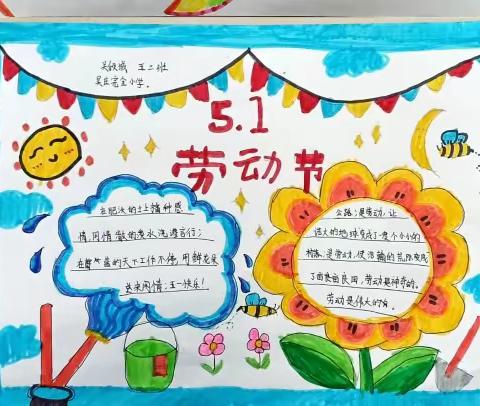 吴欣城 五二班
吴庄完全小学。
5.1
劳动节
在肥沃的土上播种愿
情,用情散的爱水浇灌言行;
在蔚蓝的天下工作不停,用鲜花采
共来闲情:五一快乐!
公路;是劳动,让
浩大的地球变成了一座个小小的
村落;是劳动,使浩瀚的荒原变成
了亩亩亩良田,劳动是神奇的。
劳动是伟大的。